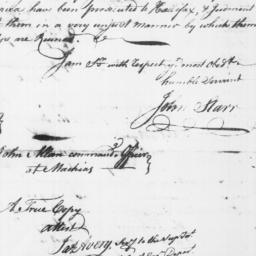 have been prosecuted to Halifax, & Judgment
them in a very unjust manner by which them
are Ruined &c
I am Sr. with respect yr. most Obedt
humble Servant
John Starr
John Allan commandg Officer
at Machias
A True Copy
attest
Jas Avery Secy to the